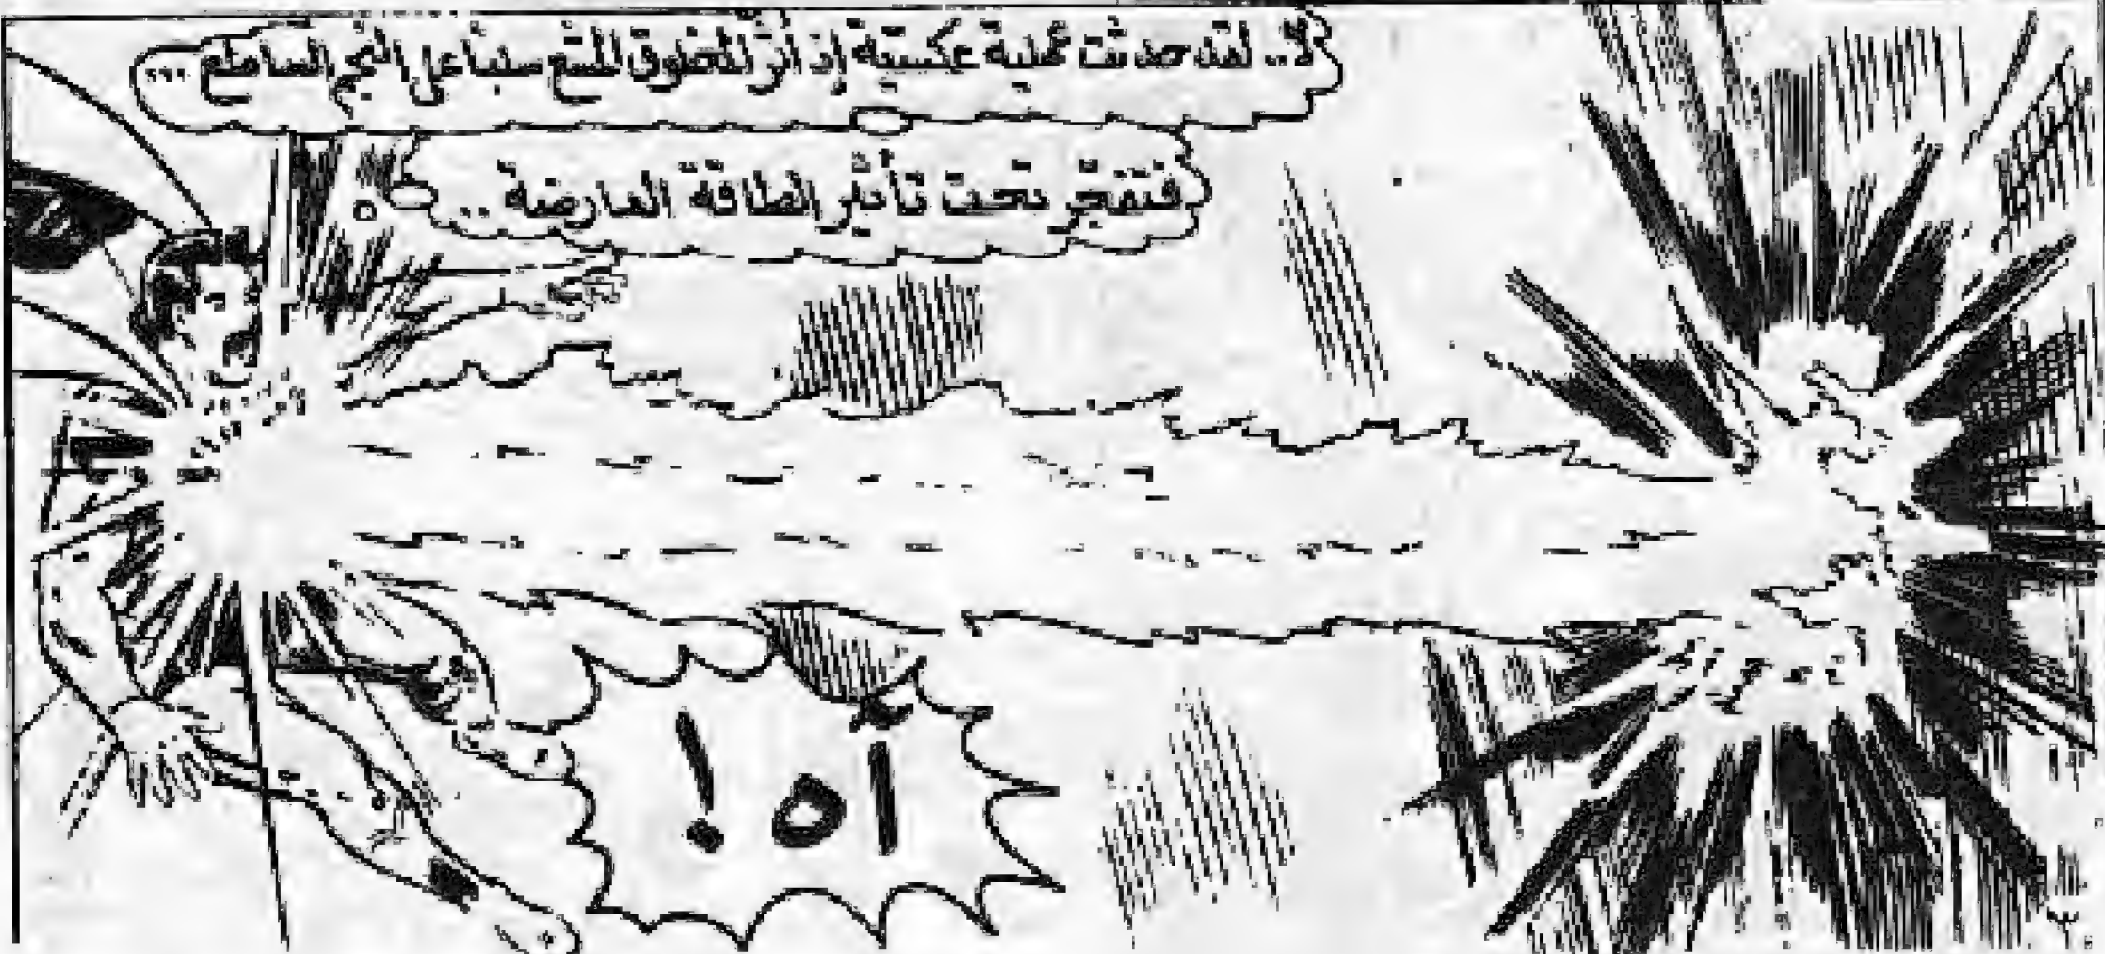 لا.. لقد حدثت عملية عكسية إذ أثر المخلوق المشع سلباً على النجم الساطع...
فتفجر تحت تأثير الطاقة العارضة..
آه!